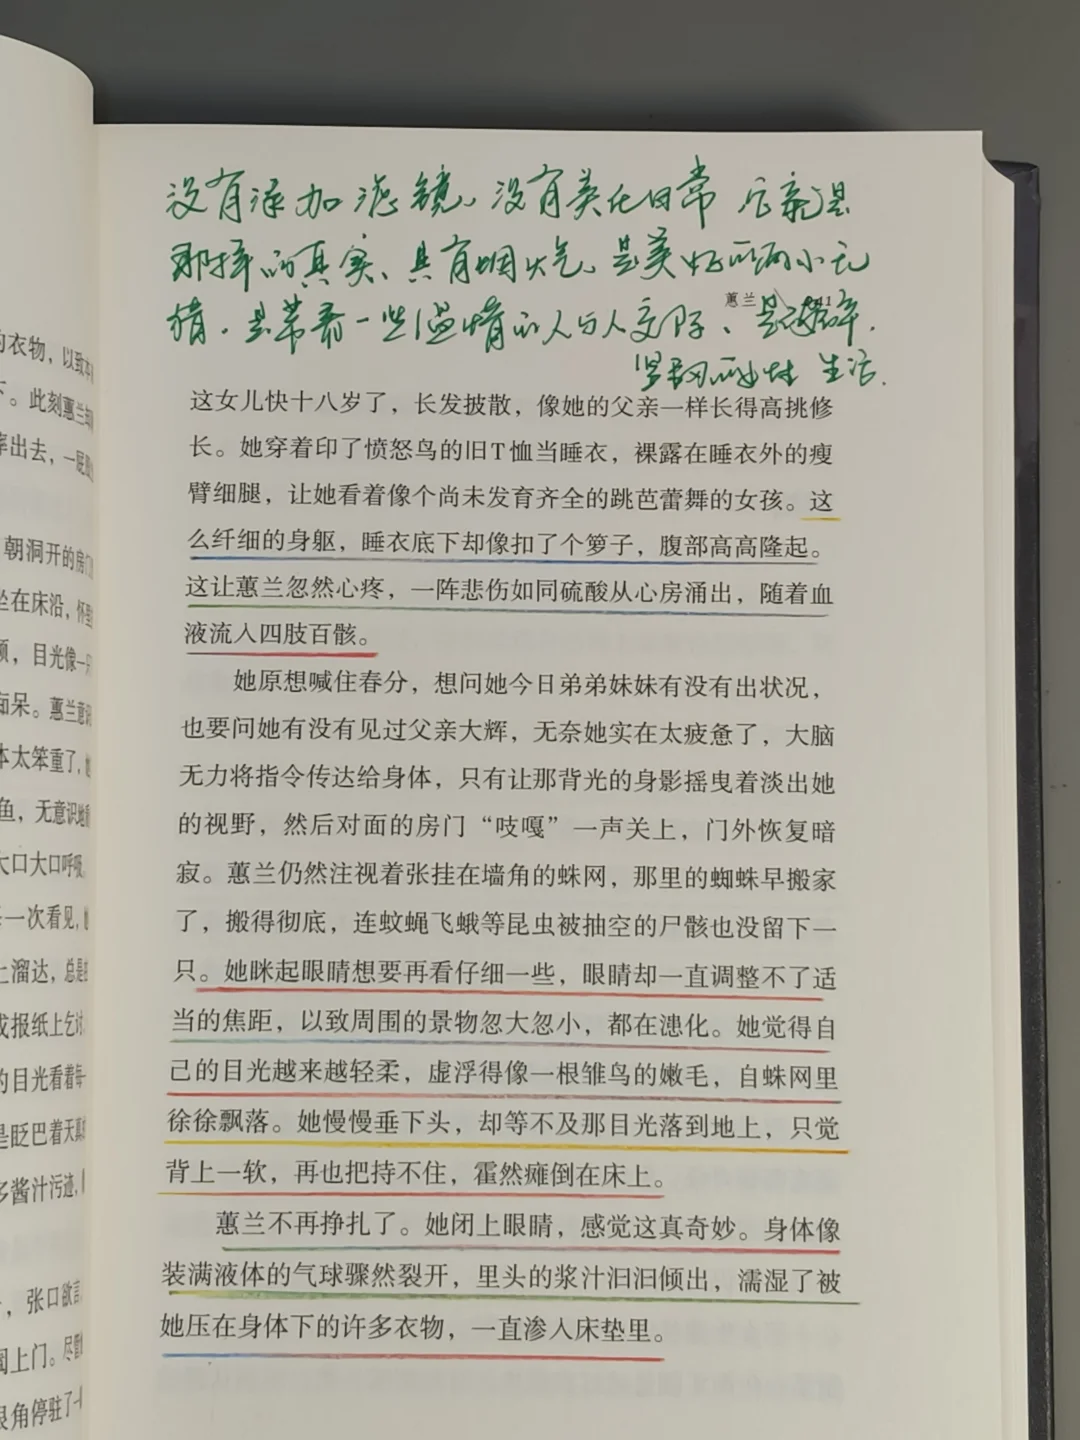 没有添加滤镜、没有美化日常 它就是
那样的真实、具有烟火气、是美好的两小无
猜、是带着一些温情的人与人交际、是琐碎、
坚韧的女性 生活.
蕙兰
这女儿快十八岁了，长发披散，像她的父亲一样长得高挑修
长。她穿着印了愤怒鸟的旧T恤当睡衣，裸露在睡衣外的瘦
臂细腿，让她看着像个尚未发育齐全的跳芭蕾舞的女孩。这
么纤细的身躯，睡衣底下却像扣了个箩子，腹部高高隆起。
这让蕙兰忽然心疼，一阵悲伤如同硫酸从心房涌出，随着血
液流入四肢百骸。
她原想喊住春分，想问她今日弟弟妹妹有没有出状况，
也要问她有没有见过父亲大辉，无奈她实在太疲惫了，大脑
无力将指令传达给身体，只有让那背光的身影摇曳着淡出她
的视野，然后对面的房门“吱嘎”一声关上，门外恢复暗
寂。蕙兰仍然注视着张挂在墙角的蛛网，那里的蜘蛛早搬家
了，搬得彻底，连蚊蝇飞蛾等昆虫被抽空的尸骸也没留下一
只。她眯起眼睛想要再看仔细一些，眼睛却一直调整不了适
当的焦距，以致周围的景物忽大忽小，都在漶化。她觉得自
己的目光越来越轻柔，虚浮得像一根雏鸟的嫩毛，自蛛网里
徐徐飘落。她慢慢垂下头，却等不及那目光落到地上，只觉
背上一软，再也把持不住，霍然瘫倒在床上。
蕙兰不再挣扎了。她闭上眼睛，感觉这真奇妙。身体像
装满液体的气球骤然裂开，里头的浆汁汩汩倾出，濡湿了被
她压在身体下的许多衣物，一直渗入床垫里。
的衣物，以致
下。此刻蕙兰
出去，一屁
朝洞开的房门
坐在床沿，怀里
目光像一
痴呆。蕙兰意识
太笨重了，
鱼，无意识地
大口大口呼吸
一次看见，
上溜达，总是
或报纸上乞讨
的目光看着每一
是眨巴着天真
多酱汁污迹，
，张口欲言
上门。尽管
眼角停驻了一